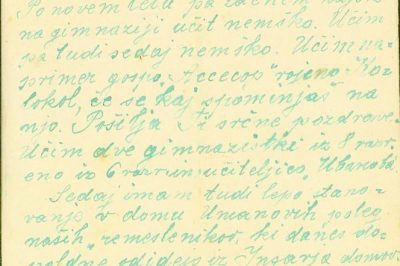 Po novem letu pa začnem najbrž
na gimnaziji učit nemško. Učim
pa tudi sedaj nemško. Učim na-
primer gospo "Accecop" rojeno Ko-
lokol, če se kaj spominjaš na
njo. Pošilja Ti srčne pozdrave.
Učim dve gimnazistke iz 8 razr.
eno iz 6 razr. in učiteljico
Sedaj imam tudi lepo stano-
vanje v domu Umanovih posleg
naših "remeslenikov", ki danes do-
poldne odidejo iz domov.